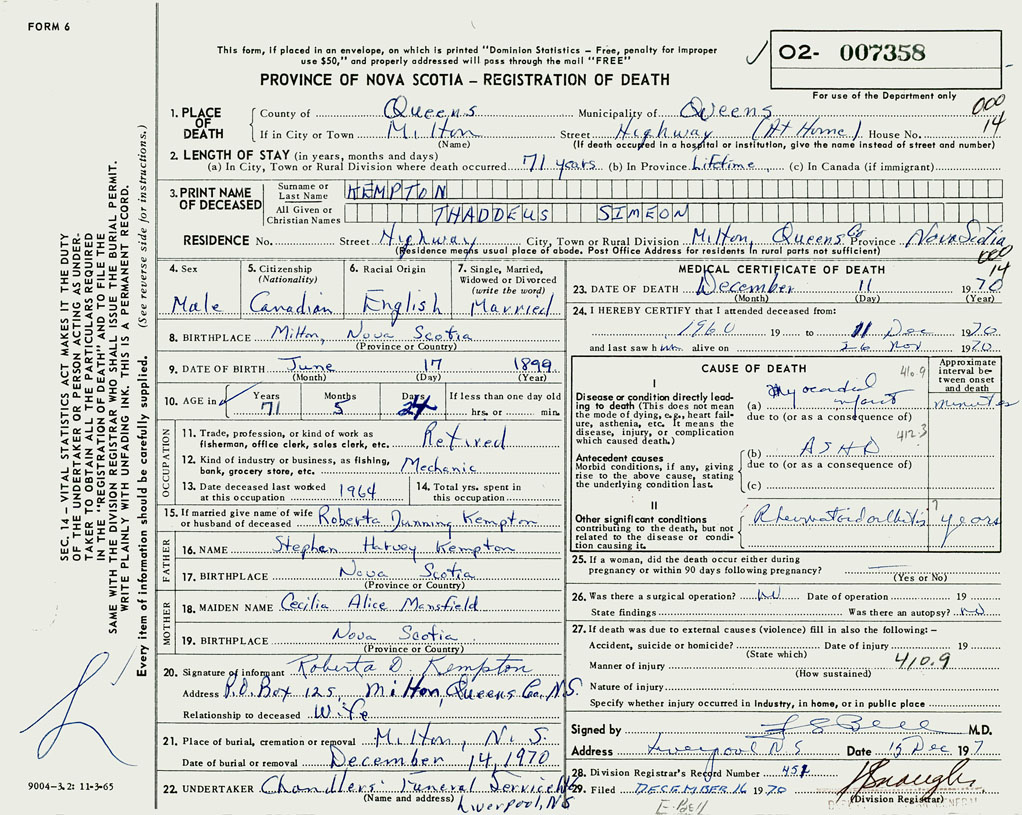 FORM 6
This form, if placed in an envelope, on which is printed "Dominion Statistics – Free, penalty for improper
use $50," and properly addressed will pass through the mail "FREE"
PROVINCE OF NOVA SCOTIA – REGISTRATION OF DEATH
O2- 007358
For use of the Department only
000
14
1. PLACE OF DEATH { County of Queens Municipality of Queens
If in City or Town Milton Street Highway (At Home) House No.
(Name) (If death occurred in a hospital or institution, give the name instead of street and number)
2. LENGTH OF STAY (in years, months and days)
(a) In City, Town or Rural Division where death occurred 71 years (b) In Province Lifetime (c) In Canada (if immigrant)
3. PRINT NAME OF DECEASED { Surname or Last Name KEMPTON
All Given or Christian Names THADDEUS SIMEON
RESIDENCE No. Street Highway City, Town or Rural Division Milton, Queens Co Province Nova Scotia
(Residence means usual place of abode. Post Office Address for residents in rural parts not sufficient)
000
14
4. Sex Male
5. Citizenship (Nationality) Canadian
6. Racial Origin English
7. Single, Married, Widowed or Divorced (write the word) Married
8. BIRTHPLACE Milton, Nova Scotia
(Province or Country)
9. DATE OF BIRTH June 17 1899
(Month) (Day) (Year)
10. AGE in Years 71 Months 5 Days 24 If less than one day old hrs. or min.
OCCUPATION
11. Trade, profession, or kind of work as fisherman, office clerk, sales clerk, etc. Retired
12. Kind of industry or business, as fishing, bank, grocery store, etc. Mechanic
13. Date deceased last worked at this occupation 1964
14. Total yrs. spent in this occupation
15. If married give name of wife or husband of deceased Roberta Dunning Kempton
FATHER
16. NAME Stephen Harvey Kempton
17. BIRTHPLACE Nova Scotia
(Province or Country)
MOTHER
18. MAIDEN NAME Cecilia Alice Mansfield
19. BIRTHPLACE Nova Scotia
(Province or Country)
20. Signature of informant Roberta D. Kempton
Address P.O. Box 125, Milton, Queens Co., N.S.
Relationship to deceased Wife
21. Place of burial, cremation or removal Milton, N.S.
Date of burial or removal December 14, 1970
22. UNDERTAKER Chandlers Funeral Service
(Name and address) Liverpool, NS
MEDICAL CERTIFICATE OF DEATH
23. DATE OF DEATH December 11 1970
(Month) (Day) (Year)
24. I HEREBY CERTIFY that I attended deceased from:
1960 19 to 11 Dec 1970
and last saw him alive on 26 Nov 1970
CAUSE OF DEATH 410.9
Approximate interval between onset and death
I
Disease or condition directly leading to death (This does not mean the mode of dying, e.g., heart failure, asthenia, etc. It means the disease, injury, or complication which caused death.)
(a) Myocardial infarct minutes
due to (or as a consequence of)
412.3
Antecedent causes
Morbid conditions, if any, giving rise to the above cause, stating the underlying condition last.
(b) ASHD
due to (or as a consequence of)
(c)
II
Other significant conditions contributing to the death, but not related to the disease or condition causing it.
Rheumatoid arthritis ? years
25. If a woman, did the death occur either during
pregnancy or within 90 days following pregnancy?
(Yes or No)
26. Was there a surgical operation? No Date of operation 19
State findings Was there an autopsy? No
27. If death was due to external causes (violence) fill in also the following: –
Accident, suicide or homicide? Date of injury 19
(State which)
Manner of injury 410.9
(How sustained)
Nature of injury
Specify whether injury occurred in industry, in home, or in public place
Signed by M.D.
Address Liverpool N S Date 15 Dec 197
28. Division Registrar's Record Number 451
29. Filed DECEMBER 16 1970
(Division Registrar)
E. Bell
SEC. 14 – VITAL STATISTICS ACT MAKES IT THE DUTY
OF THE UNDERTAKER OR PERSON ACTING AS UNDER-
TAKER TO OBTAIN ALL THE PARTICULARS REQUIRED
IN THE "REGISTRATION OF DEATH" AND TO FILE THE
SAME WITH THE DIVISION REGISTRAR WHO SHALL ISSUE THE BURIAL PERMIT.
WRITE PLAINLY WITH UNFADING INK. THIS IS A PERMANENT RECORD.
Every item of information should be carefully supplied. (See reverse side for instructions.)
9004-3.2: 11-3-65